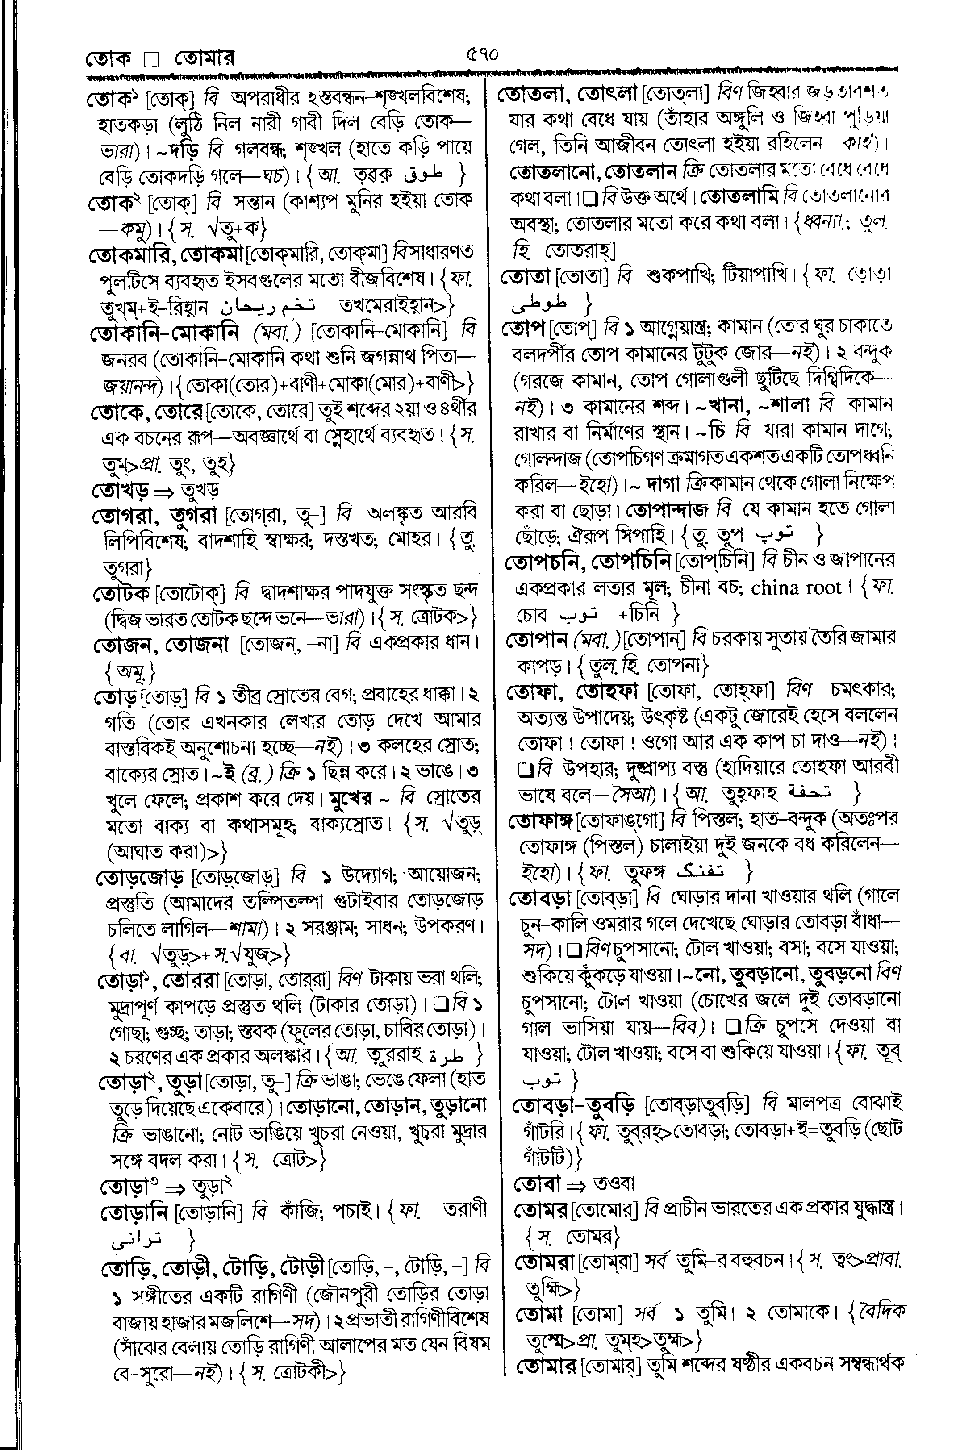 তোক □ তোমার
৫৭০
তোক১ [তোক্] বি অপরাধীর হস্তবন্ধন—শৃঙ্খলবিশেষ;
হাতকড়া (লুঠি নিল নারী গাবী দিল বেড়ি তোক—
ভারা)। ~দড়ি বি গলবন্ধ; শৃঙ্খল (হাতে কড়ি পায়ে
বেড়ি তোকদড়ি গলে—ঘচ)। {আ. ত়ব়ক় طوق }
তোক২ [তোক্] বি সন্তান (কাশ্যপ মুনির হইয়া তোক
—কমু)। {স. √তু+ক}
তোকমারি, তোকমা [তোক্‌মারি, তোক্‌মা] বি সাধারণত
পুলটিসে ব্যবহৃত ইসবগুলের মতো বীজবিশেষ। {ফা.
তুখ়ম্+ই-রিহ়ান تخم ريحان তখমেরাইহান>}
তোকানি-মোকানি (মবা.) [তোকানি-মোকানি] বি
জনরব (তোকানি-মোকানি কথা শুনি জগন্নাথ পিতা—
জয়ানন্দ)। {তোকা(তোর)+বাণী+মোকা(মোর)+বাণী>}
তোকে, তোরে [তোকে, তোরে] তুই শব্দের ২য়া ও ৪র্থীর
এক বচনের রূপ—অবজ্ঞার্থে বা স্নেহার্থে ব্যবহৃত। {স.
তুম্>প্রা. তুং, তুহ}
তোখড় ⇒ তুখড়
তোগরা, তুগরা [তোগ্‌রা, তু–] বি অলঙ্কৃত আরবি
লিপিবিশেষ; বাদশাহি স্বাক্ষর; দস্তখত; মোহর। {তু.
তুগরা}
তোটক [তোটোক্] বি দ্বাদশাক্ষর পাদযুক্ত সংস্কৃত ছন্দ
(দ্বিজ ভারত তোটক ছন্দে ভনে—ভারা)। {স. ত্রোটক>}
তোজন, তোজনা [তোজন, –না] বি একপ্রকার ধান।
{অমূ.}
তোড় [তোড়্] বি ১ তীব্র স্রোতের বেগ; প্রবাহের ধাক্কা। ২
গতি (তোর এখনকার লেখার তোড় দেখে আমার
বাস্তবিকই অনুশোচনা হচ্ছে—নই)। ৩ কলহের স্রোত;
বাক্যের স্রোত। ~ই (ব্র.) ক্রি ১ ছিন্ন করে। ২ ভাঙে। ৩
খুলে ফেলে; প্রকাশ করে দেয়। মুখের ~ বি স্রোতের
মতো বাক্য বা কথাসমূহ; বাক্যস্রোত। {স. √তুড়্
(আঘাত করা)>}
তোড়জোড় [তোড়্‌জোড়্] বি ১ উদ্যোগ; আয়োজন;
প্রস্তুতি (আমাদের তল্পিতল্পা গুটাইবার তোড়জোড়
চলিতে লাগিল—শামা)। ২ সরঞ্জাম; সাধন; উপকরণ।
{বা. √তুড়্>+স.√যুজ্>}
তোড়া১, তোবরা [তোড়া, তোব্‌রা] বিণ টাকায় ভরা থলি;
মুদ্রাপূর্ণ কাপড়ে প্রস্তুত থলি (টাকার তোড়া)। ❑ বি ১
গোছা; গুচ্ছ; তাড়া; স্তবক (ফুলের তোড়া, চাবির তোড়া)।
২ চরণের এক প্রকার অলঙ্কার। {আ. তু়ররাহ طرة }
তোড়া২, তুড়া [তোড়া, তু–] ক্রি ভাঙা; ভেঙে ফেলা (হাত
তুড়ে দিয়েছে একেবারে)। তোড়ানো, তোড়ান, তুড়ানো
ক্রি ভাঙানো; নোট ভাঙিয়ে খুচরা নেওয়া, খুচরা মুদ্রার
সঙ্গে বদল করা। {স. ত্রোট>}
তোড়া৩ ⇒ তুড়া২
তোড়ানি [তোড়ানি] বি কাঁজি; পচাই। {ফা. তরাণী
تراني }
তোড়ি, তোড়ী, টোড়ি, টোড়ী [তোড়ি, –, টোড়ি, –] বি
১ সঙ্গীতের একটি রাগিণী (জৌনপুরী তোড়ির তোড়া
বাজায় হাজার মজলিশে—সদ)। ২ প্রভাতী রাগিণীবিশেষ
(সাঁঝের বেলায় তোড়ি রাগিণী আলাপের মত যেন বিষম
বে-সুরো—নই)। {স. ত্রোটকী>}
তোতলা, তোৎলা [তোত্‌লা] বিণ জিহ্বার জড়তাবশত
যার কথা বেধে যায় (তাঁহার অঙ্গুলি ও জিহ্বা পুড়িয়া
গেল, তিনি আজীবন তোৎলা হইয়া রহিলেন কাহ)।
তোতলানো, তোতলান ক্রি তোতলার মতো বেধে বেধে
কথা বলা। ❑ বি উক্ত অর্থে। তোতলামি বি তোতলানোর
অবস্থা; তোতলার মতো করে কথা বলা। {ধ্বন্যা.; তুল.
হি তোতরাহ্]
তোতা [তোতা] বি শুকপাখি; টিয়াপাখি। {ফা. তোতা
طوطى }
তোপ [তোপ্] বি ১ আগ্নেয়াস্ত্র; কামান (তোর ঘুর চাকাতে
বলদর্পীর তোপ কামানের টুটুক জোর—নই)। ২ বন্দুক
(গরজে কামান, তোপ গোলাগুলী ছুটিছে দিগ্বিদিকে—
নই)। ৩ কামানের শব্দ। ~খানা, ~শালা বি কামান
রাখার বা নির্মাণের স্থান। ~চি বি যারা কামান দাগে;
গোলন্দাজ (তোপচিগণ ক্রমাগত একশত একটি তোপধ্বনি
করিল—ইহো)। ~ দাগা ক্রি কামান থেকে গোলা নিক্ষেপ
করা বা ছোড়া। তোপান্দাজ বি যে কামান হতে গোলা
ছোঁড়ে; ঐরূপ সিপাহি। {তু. তূপ توپ }
তোপচনি, তোপ্‌চিনি [তোপ্‌চিনি] বি চীন ও জাপানের
একপ্রকার লতার মূল; চীনা বচ; china root। {ফা.
চোব توب +চিনি }
তোপান (মবা.) [তোপান্] বি চরকায় সুতায় তৈরি জামার
কাপড়। {তুল. হি. তোপনা}
তোফা, তোহফা [তোফা, তোহ্‌ফা] বিণ চমৎকার;
অত্যন্ত উপাদেয়; উৎকৃষ্ট (একটু জোরেই হেসে বললেন
তোফা! তোফা! ওগো আর এক কাপ চা দাও—নই)।
❑ বি উপহার; দুষ্প্রাপ্য বস্তু (হাদিয়ারে তোহফা আরবী
ভাষে বলে—সৈআ)। {আ. তুহ়ফাহ تحفة }
তোফাঙ্গ [তোফাঙ্‌গো] বি পিস্তল; হাত-বন্দুক (অতঃপর
তোফাঙ্গ (পিস্তল) চালাইয়া দুই জনকে বধ করিলেন—
ইহো)। {ফা. তুফঙ্গ تفنگ }
তোবড়া [তোব্‌ড়া] বি ঘোড়ার দানা খাওয়ার থলি (গালে
চুন-কালি ওমরার গলে দেখেছে ঘোড়ার তোবড়া বাঁধা—
সদ)। ❑ বিণ চুপসানো; টোল খাওয়া; বসা; বসে যাওয়া;
শুকিয়ে কুঁকড়ে যাওয়া। ~নো, তুবড়ানো, তুবড়নো বিণ
চুপসানো; টোল খাওয়া (চোখের জলে দুই তোবড়ানো
গাল ভাসিয়া যায়—বিব)। ❑ ক্রি চুপসে দেওয়া বা
যাওয়া; টোল খাওয়া; বসে বা শুকিয়ে যাওয়া। {ফা. তূব্
توب }
তোবড়া-তুবড়ি [তোব্‌ড়াতুব্‌ড়ি] বি মালপত্র বোঝাই
গাঁটরি। {ফা. তুব্‌রহ্>তোবড়া; তোবড়া+ই=তুবড়ি (ছোট
গাঁটটি)}
তোবা ⇒ তওবা
তোমর [তোমোর্] বি প্রাচীন ভারতের এক প্রকার যুদ্ধাস্ত্র।
{স. তোমর}
তোমরা [তোম্‌রা] সর্ব তুমি-র বহুবচন। {স. ত্বং>প্রাবা.
তুহ্মি>}
তোমা [তোমা] সর্ব ১ তুমি। ২ তোমাকে। {বৈদিক
তুষ্মে>প্রা. তুম্‌হ>তুহ্ম>}
তোমার [তোমার্] তুমি শব্দের ষষ্ঠীর একবচন সম্বন্ধার্থক